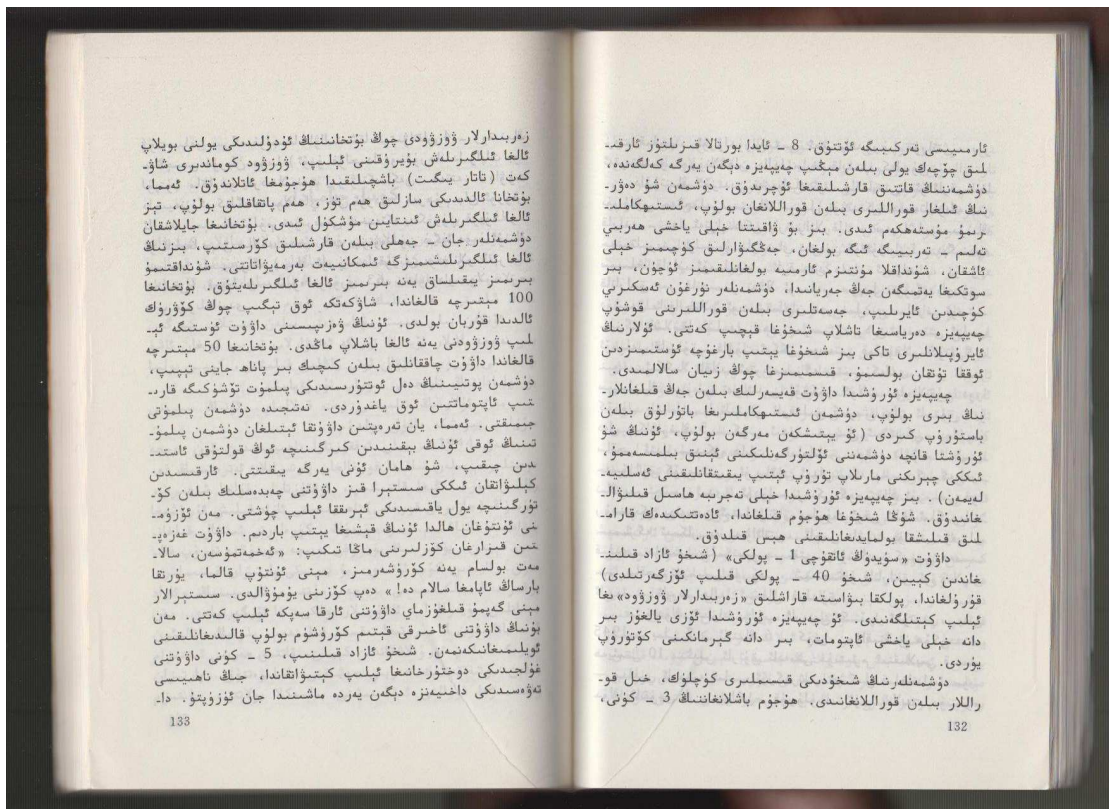 ئارمىيىسى تەركىبىگە ئۆتتۇق. 8 ـ ئايدا بورتالا قىزىلتۈز ئارقىـ
لىق چۆچەك يولى بىلەن مېڭىپ چەيپەيزە دېگەن يەرگە كەلگەندە،
دۈشمەننىڭ قاتتىق قارشىلىقىغا ئۇچرىدۇق. دۈشمەن شۇ دەۋرـ
نىڭ ئىلغار قوراللىرى بىلەن قوراللانغان بولۇپ، ئىستىھكاملىـ
رىمۇ مۇستەھكەم ئىدى. بىز بۇ ۋاقىتتا خېلى ياخشى ھەربىي
تەلىم ـ تەربىيىگە ئىگە بولغان، جەڭگىۋارلىق كۈچىمىز خېلى
ئاشقان، شۇنداقلا مۇنتىزىم ئارمىيە بولغانلىقىمىز ئۈچۈن، بىر
سوتكىغا يەتمىگەن جەڭ جەريانىدا، دۈشمەنلەر نۇرغۇن ئەسكىرىي
كۈچىدىن ئايرىلىپ، جەسەتلىرى بىلەن قوراللىرىنى قوشۇپ
چەيپەيزە دەرياسىغا تاشلاپ شىخۇغا قېچىپ كەتتى. ئۇلارنىڭ
ئايرۇپىلانلىرى تاكى بىز شىخۇغا يېتىپ بارغۇچە ئۈستىمىزدىن
ئوققا تۇتقان بولسىمۇ، قىسمىمىزغا چوڭ زىيان سالالمىدى.
چەيپەيزە ئۇرۇشىدا داۋۇت قەيسەرلىك بىلەن جەڭ قىلغانلارـ
نىڭ بىرى بولۇپ، دۈشمەن ئىستىھكاملىرىغا باتۇرلۇق بىلەن
باستۇرۇپ كىردى (ئۇ يېتىشكەن مەرگەن بولۇپ، ئۇنىڭ شۇ
ئۇرۇشتا قانچە دۈشمەننى ئۆلتۈرگەنلىكىنى ئېنىق بىلمىسەممۇ،
ئىككى چېرىكنى مارىلاپ تۇرۇپ ئېتىپ يىقىتقانلىقىنى ئەسلىيەـ
لەيمەن). بىز چەيپەيزە ئۇرۇشىدا خېلى تەجرىبە ھاسىل قىلىۋالـ
غانىدۇق. شۇڭا شىخۇغا ھۇجۇم قىلغاندا، ئادەتتىكىدەك قارامـ
لىق قىلىشقا بولمايدىغانلىقىنى ھېس قىلدۇق.
داۋۇت «سۈيدۈڭ ئاتقۇچى 1 ـ پولكى» (شىخۇ ئازاد قىلىنـ
غاندىن كېيىن، شىخۇ 40 ـ پولكى قىلىپ ئۆزگەرتىلدى)
قۇرۇلغاندا، پولكقا بىۋاسىتە قاراشلىق «زەربىدارلار ۋزۋودى»غا
ئېلىپ كېتىلگەنىدى. ئۇ چەيپەيزە ئۇرۇشىدا ئۆزى يالغۇز بىر
دانە خېلى ياخشى ئاپتومات، بىر دانە گېرمانكىنى كۆتۈرۈپ
يۈردى.
دۈشمەنلەرنىڭ شىخۇدىكى قىسىملىرى كۈچلۈك، خىل قوـ
راللار بىلەن قوراللانغانىدى. ھۇجۇم باشلانغاننىڭ 3 ـ كۈنى،
132
زەربىدارلار ۋزۋودى چوڭ بۇتخانىنىڭ ئۇدۇلىدىكى يولنى بويلاپ
ئالغا ئىلگىرىلەش بۇيرۇقىنى ئېلىپ، ۋزۋود كوماندىرى شاۋـ
كەت (تاتار يىگىت) باشچىلىقىدا ھۇجۇمغا ئاتلاندۇق. ئەمما،
بۇتخانا ئالدىدىكى سازلىق ھەم تۈز، ھەم پاتقاقلىق بولۇپ، تېز
ئالغا ئىلگىرىلەش ئىنتايىن مۈشكۈل ئىدى. بۇتخانىغا جايلاشقان
دۈشمەنلەر جان ـ جەھلى بىلەن قارشىلىق كۆرسىتىپ، بىزنىڭ
ئالغا ئىلگىرىلىشىمىزگە ئىمكانىيەت بەرمەيۋاتاتتى. شۇنداقتىمۇ
بىرىمىز يىقىلساق يەنە بىرىمىز ئالغا ئىلگىرىلەيتۇق. بۇتخانىغا
100 مېتىرچە قالغاندا، شاۋكەتكە ئوق تېگىپ چوڭ كۆۋرۈك
ئالدىدا قۇربان بولدى. ئۇنىڭ ۋەزىپىسىنى داۋۇت ئۈستىگە ئېـ
لىپ ۋزۋودنى يەنە ئالغا باشلاپ ماڭدى. بۇتخانىغا 50 مېتىرچە
قالغاندا داۋۇت چاققانلىق بىلەن كىچىك بىر پاناھ جاينى تېپىپ،
دۈشمەن پوتىيىنىڭ دەل ئوتتۇرىسىدىكى پىلمۇت تۆشۈكىگە قارىـ
تىپ ئاپتوماتتىن ئوق ياغدۇردى. نەتىجىدە دۈشمەن پىلمۇتى
جىمىقتى. ئەمما، يان تەرەپتىن داۋۇتقا ئېتىلغان دۈشمەن پىلمۇـ
تىنىڭ ئوقى ئۇنىڭ بېقىنىدىن كىرگىنىچە ئوڭ قولتۇقى ئاستىـ
دىن چىقىپ، شۇ ھامان ئۇنى يەرگە يىقىتتى. ئارقىسىدىن
كېلىۋاتقان ئىككى سىستېرا قىز داۋۇتنى چەبدەسلىك بىلەن كۆـ
تۈرگىنىچە يول ياقىسىدىكى ئېرىققا ئېلىپ چۈشتى. مەن ئۆزۈمـ
نى ئۇنتۇغان ھالدا ئۇنىڭ قېشىغا يېتىپ باردىم. داۋۇت غەزەپـ
تىن قىزارغان كۆزلىرىنى ماڭا تىكىپ: «ئەخمەتمۇسەن، سالاـ
مەت بولسام يەنە كۆرۈشەرمىز، مېنى ئۇنتۇپ قالما، يۇرتقا
بارساڭ ئاپامغا سالام دە!» دەپ كۆزىنى يۇمۇۋالدى. سىستېرالار
مېنى گەپمۇ قىلغۇزماي داۋۇتنى ئارقا سەپكە ئېلىپ كەتتى. مەن
بۇنىڭ داۋۇتنى ئاخىرقى قېتىم كۆرۈشۈم بولۇپ قالىدىغانلىقىنى
ئويلىمىغانىكەنمەن. شىخۇ ئازاد قىلىنىپ، 5 ـ كۈنى داۋۇتنى
غۇلجىدىكى دوختۇرخانىغا ئېلىپ كېتىۋاتقاندا، جىڭ ناھىيىسى
تەۋەسىدىكى داخىيەنزە دېگەن يەردە ماشىنىدا جان ئۈزۈپتۇ. داـ
133